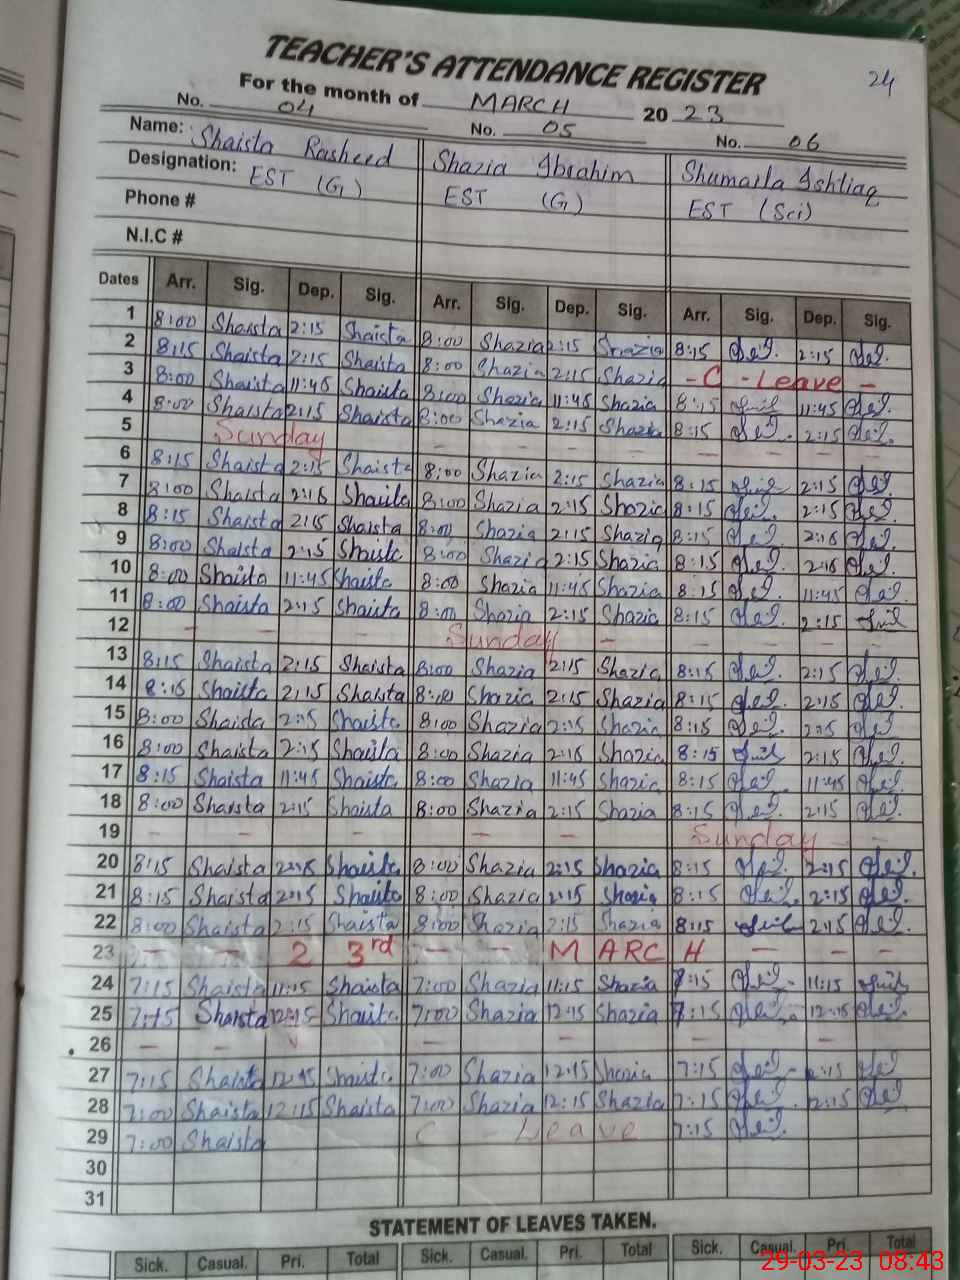 TEACHER'S ATTENDANCE REGISTER
24
For the month of MARCH 2023
No. 04 No. 05 No. 06
Name: Shaista Rasheed Shazia Ibrahim Shumaila Ishtiaq
Designation: EST (G) EST (G) EST (Sci)
Phone #
N.I.C #
Dates Arr. Sig. Dep. Sig. Arr. Sig. Dep. Sig. Arr. Sig. Dep. Sig.
1 8:00 Shaista 2:15 Shaista 8:00 Shazia 2:15 Shazia 8:15 2:15
2 8:15 Shaista 2:15 Shaista 8:00 Shazia 2:15 Shazia - C - Leave -
3 8:00 Shaista 11:45 Shaista 8:00 Shazia 11:45 Shazia 8:15 11:45
4 8:00 Shaista 2:15 Shaista 8:00 Shazia 2:15 Shazia 8:15 2:15
5 Sunday - - - - - - - -
6 8:15 Shaista 2:15 Shaista 8:00 Shazia 2:15 Shazia 8:15 2:15
7 8:00 Shaista 2:15 Shaista 8:00 Shazia 2:15 Shazia 8:15 2:15
8 8:15 Shaista 2:15 Shaista 8:00 Shazia 2:15 Shazia 8:15 2:15
9 8:00 Shaista 2:15 Shaista 8:00 Shazia 2:15 Shazia 8:15 2:15
10 8:00 Shaista 11:45 Shaista 8:00 Shazia 11:45 Shazia 8:15 11:45
11 8:00 Shaista 2:15 Shaista 8:00 Shazia 2:15 Shazia 8:15 2:15
12 - - - Sunday - - - -
13 8:15 Shaista 2:15 Shaista 8:00 Shazia 2:15 Shazia 8:15 2:15
14 8:15 Shaista 2:15 Shaista 8:00 Shazia 2:15 Shazia 8:15 2:15
15 8:00 Shaista 2:15 Shaista 8:00 Shazia 2:15 Shazia 8:15 2:15
16 8:00 Shaista 2:15 Shaista 8:00 Shazia 2:15 Shazia 8:15 2:15
17 8:15 Shaista 11:45 Shaista 8:00 Shazia 11:45 Shazia 8:15 11:45
18 8:00 Shaista 2:15 Shaista 8:00 Shazia 2:15 Shazia 8:15 2:15
19 - - - - - Sunday -
20 8:15 Shaista 2:15 Shaista 8:00 Shazia 2:15 Shazia 8:15 2:15
21 8:15 Shaista 2:15 Shaista 8:00 Shazia 2:15 Shazia 8:15 2:15
22 8:00 Shaista 2:15 Shaista 8:00 Shazia 2:15 Shazia 8:15 2:15
23 - - 2 3rd - - M ARC H - - -
24 7:15 Shaista 11:15 Shaista 7:00 Shazia 11:15 Shazia 7:15 11:15
25 7:15 Shaista 12:15 Shaista 7:00 Shazia 12:15 Shazia 7:15 12:15
26 - - - - - -
27 7:15 Shaista 12:15 Shaista 7:00 Shazia 12:15 Shazia 7:15 12:15
28 7:00 Shaista 12:15 Shaista 7:00 Shazia 12:15 Shazia 7:15 12:15
29 7:00 Shaista C - Leave 7:15
30
31
STATEMENT OF LEAVES TAKEN.
Sick. Casual. Pri. Total Sick. Casual. Pri. Total Sick. Casual. Pri. Total
29-03-23 08:43